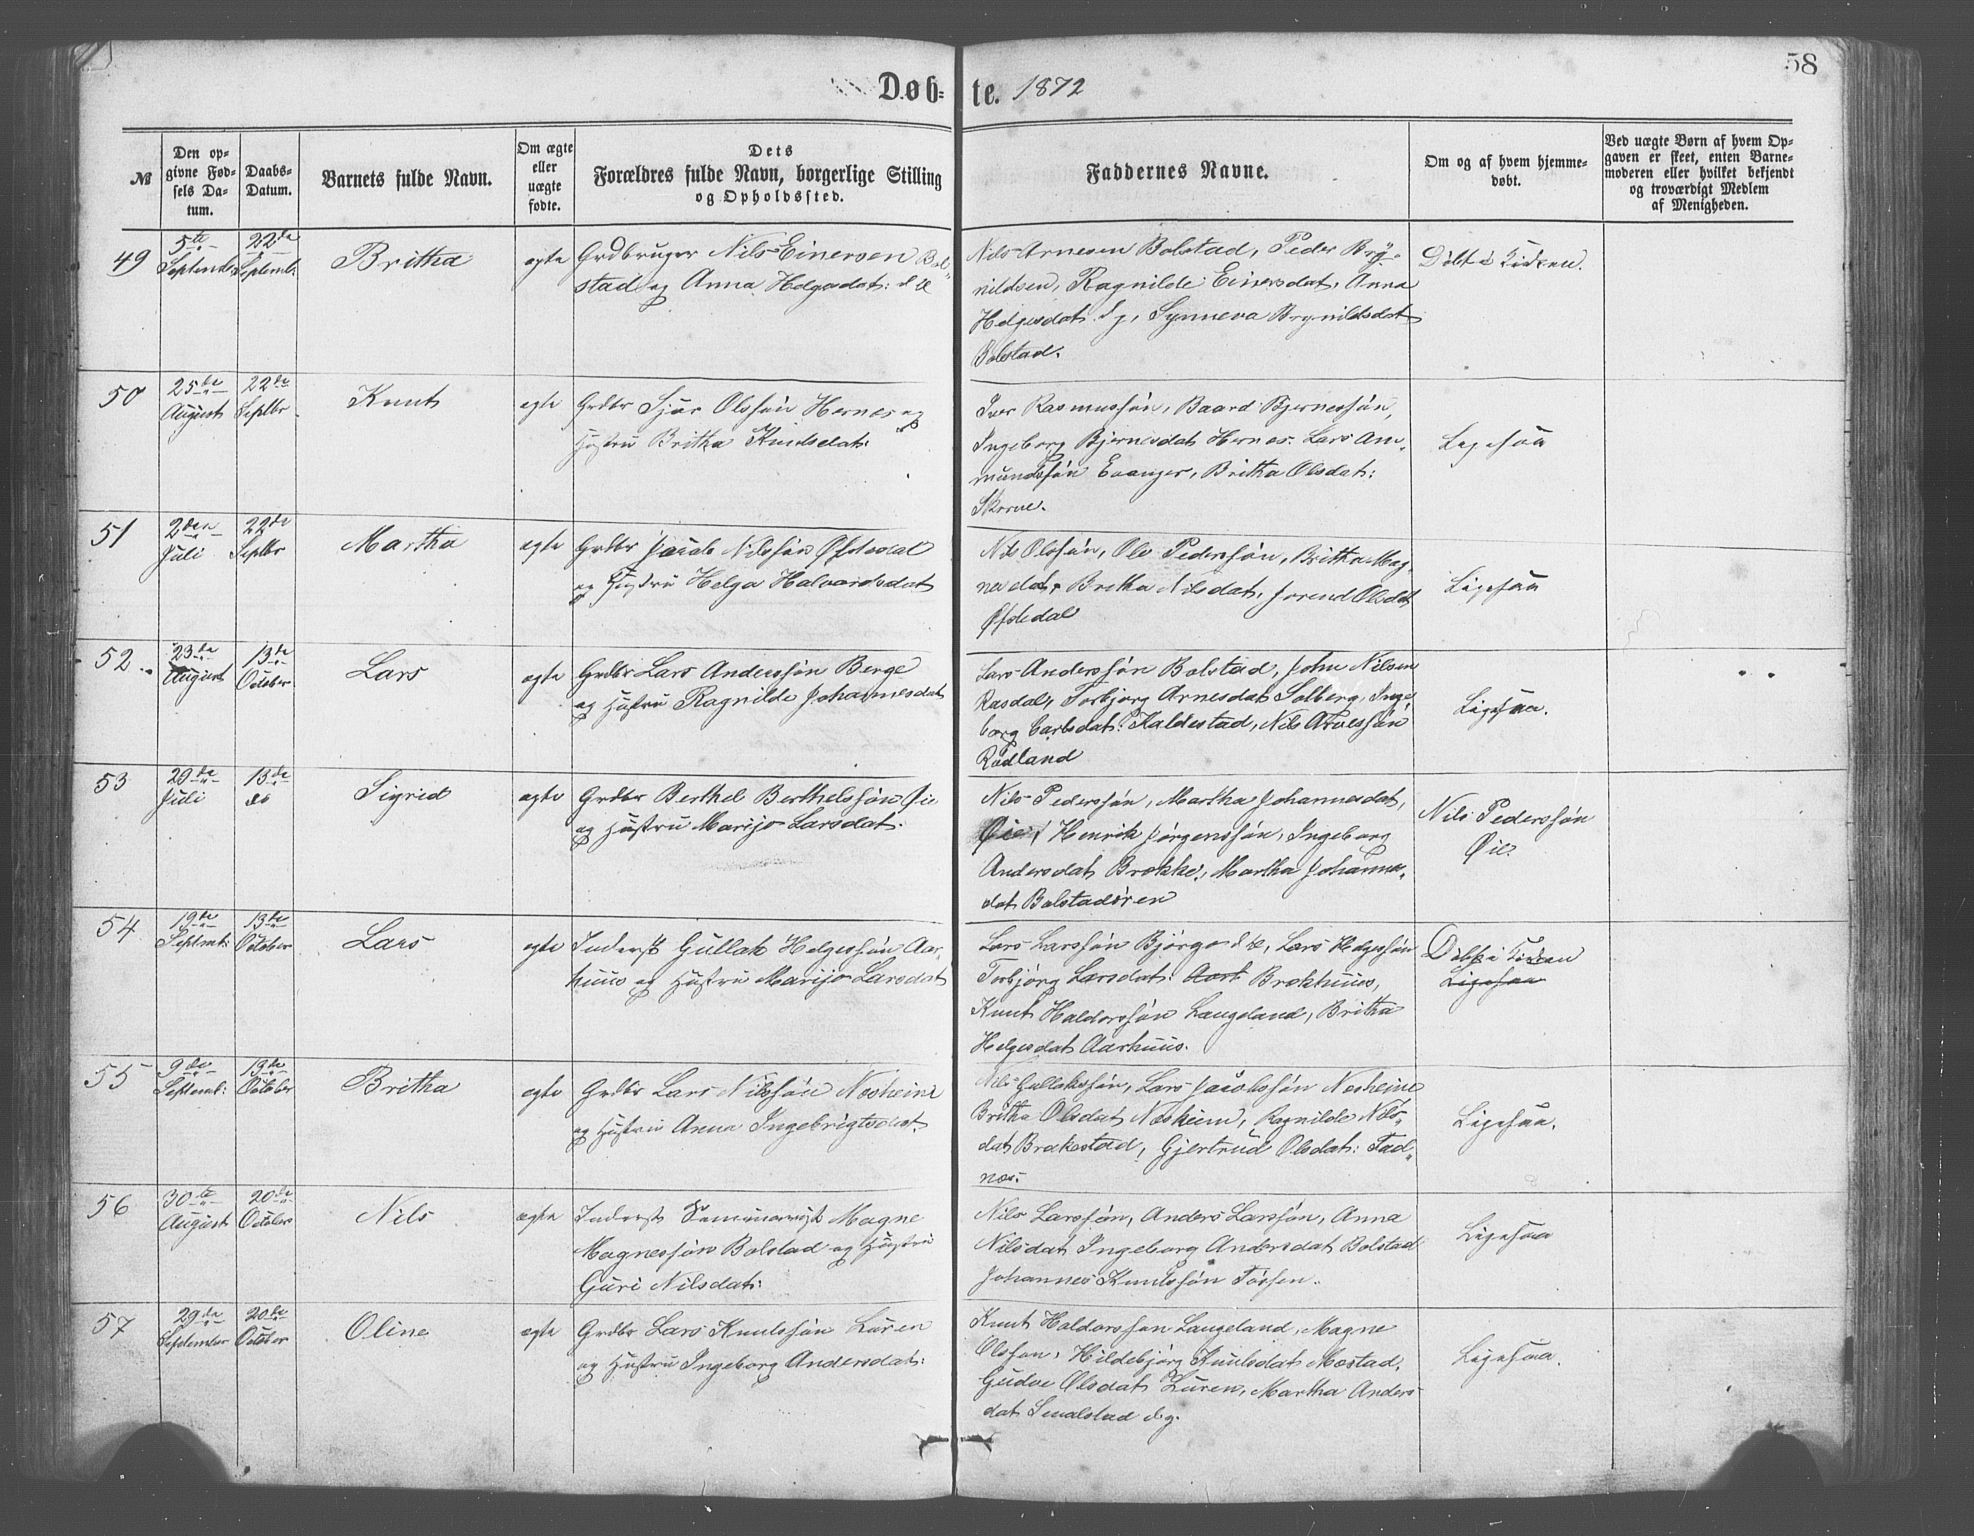 58
Døb- te. 1872
№
Den op-
givne Fød-
sels Da-
tum.
Daabs-
Datum.
Barnets fulde Navn.
Om ægte
eller
uægte
fødte.
Dets
Forældres fulde Navn, borgerlige Stilling
og Opholdssted.
Faddernes Navne.
Om og af hvem hjemme-
døbt.
Ved uægte Børn af hvem Op-
gaven er skeet, enten Barne-
moderen eller hvilket bekjendt
og troværdigt Medlem
af Menigheden.
49
5te
September
22de
Septembr
Britha
ægte
Grdbruger Nils Einersen Bol-
stad og Anna Helgesdat: d 2e
Nils Arnesen Bolstad, Peder Bry-
nildsen, Ragnilde Einersdat, Anna
Helgesdat d. y., Synneva Brynildsdat
Bolstad.
Døbt i Kirken.
50
25de
August
22de
Septbr
Knut
ægte
Grdbr Sjur Olssøn Hernes og
Hustru Britha Knudsdat:
Iver Rasmussøn, Baard Bjernessøn,
Ingeborg Bjernesdat Hernes. Lars Am-
mundssøn Evanger, Britha Olsdat:
Skorve.
Ligesaa
51
2den
Juli
22de
Septbr
Martha
ægte
Grdbr Jacob Nilssøn Øfstedal
og Hustru Helga Halvardsdat
Nils Olssøn, Ole Pederssøn, Britha Mag-
nesdat, Britha Nilsdat, Jorend Olsdat
Øfstedal
Ligesaa
52
23de
August
13de
October
Lars
ægte
Grdbr Lars Anderssøn Berge
og Hustru Ragnilde Johannesdat
Lars Anderssøn Bolstad, John Nilsen
Rasdal, Torbjørg Arnesdat Solberg, Inge-
borg Carlsdat: Kaldestad, Nils Arnessøn
Rødland
Ligesaa.
53
29de
Juli
13de
do
Sigrid
ægte
Grdbr Berthel Berthelssøn Øie
og Hustru Marijo Larsdat.
Nils Pederssøn, Martha Johannesdat,
Øie, Henrik Jørgenssøn, Ingeborg
Andersdat Brekke, Martha Johannes-
dat Bolstadøren
Nils Pederssøn
Øie.
54
19de
Septmb:
13de
October
Lars
ægte
Inderst Gullak Helgessøn Aar-
huus og Hustru Marijo Larsdat
Lars Larssøn Bjørge d 2e, Lars Helgessøn
Torbjørg Larsdat: Aarh Brekhuus,
Knut Haldorssøn Langeland, Britha
Helgesdat Aarhuus.
Døbt i Kirken
Ligesaa
55
9de
Septemb:
19de
October
Britha
ægte
Grdbr Lars Nilssøn Nesheim
og Hustru Anna Ingebrigtsdat.
Nils Gullakssøn, Lars Jacobssøn Nesheim
Britha Olsdat Nesheim, Ragnilde Nils-
dat Brekestad, Gjertrud Olsdat: Fad-
næs.
Ligesaa.
56
30te
August
20de
October
Nils
ægte
Inderst Seminarist Magne
Magnessøn Bolstad og Hustru
Guri Nilsdat:
Nils Larssøn, Anders Larssøn, Anna
Nilsdat, Ingeborg Andersdat Bolstad
Johannes Knutssøn Fossen.
Ligesaa
57
29de
September
20de
October
Oline
ægte
Grdbr Lars Knutssøn Luren
og Hustru Ingeborg Andersdat:
Knut Haldorssøn Langeland, Magne
Olssøn, Hildebjørg Knutsdat Mestad,
Gudve Olsdat Luren, Martha Anders
dat Smalstad d.y.
Ligesaa.